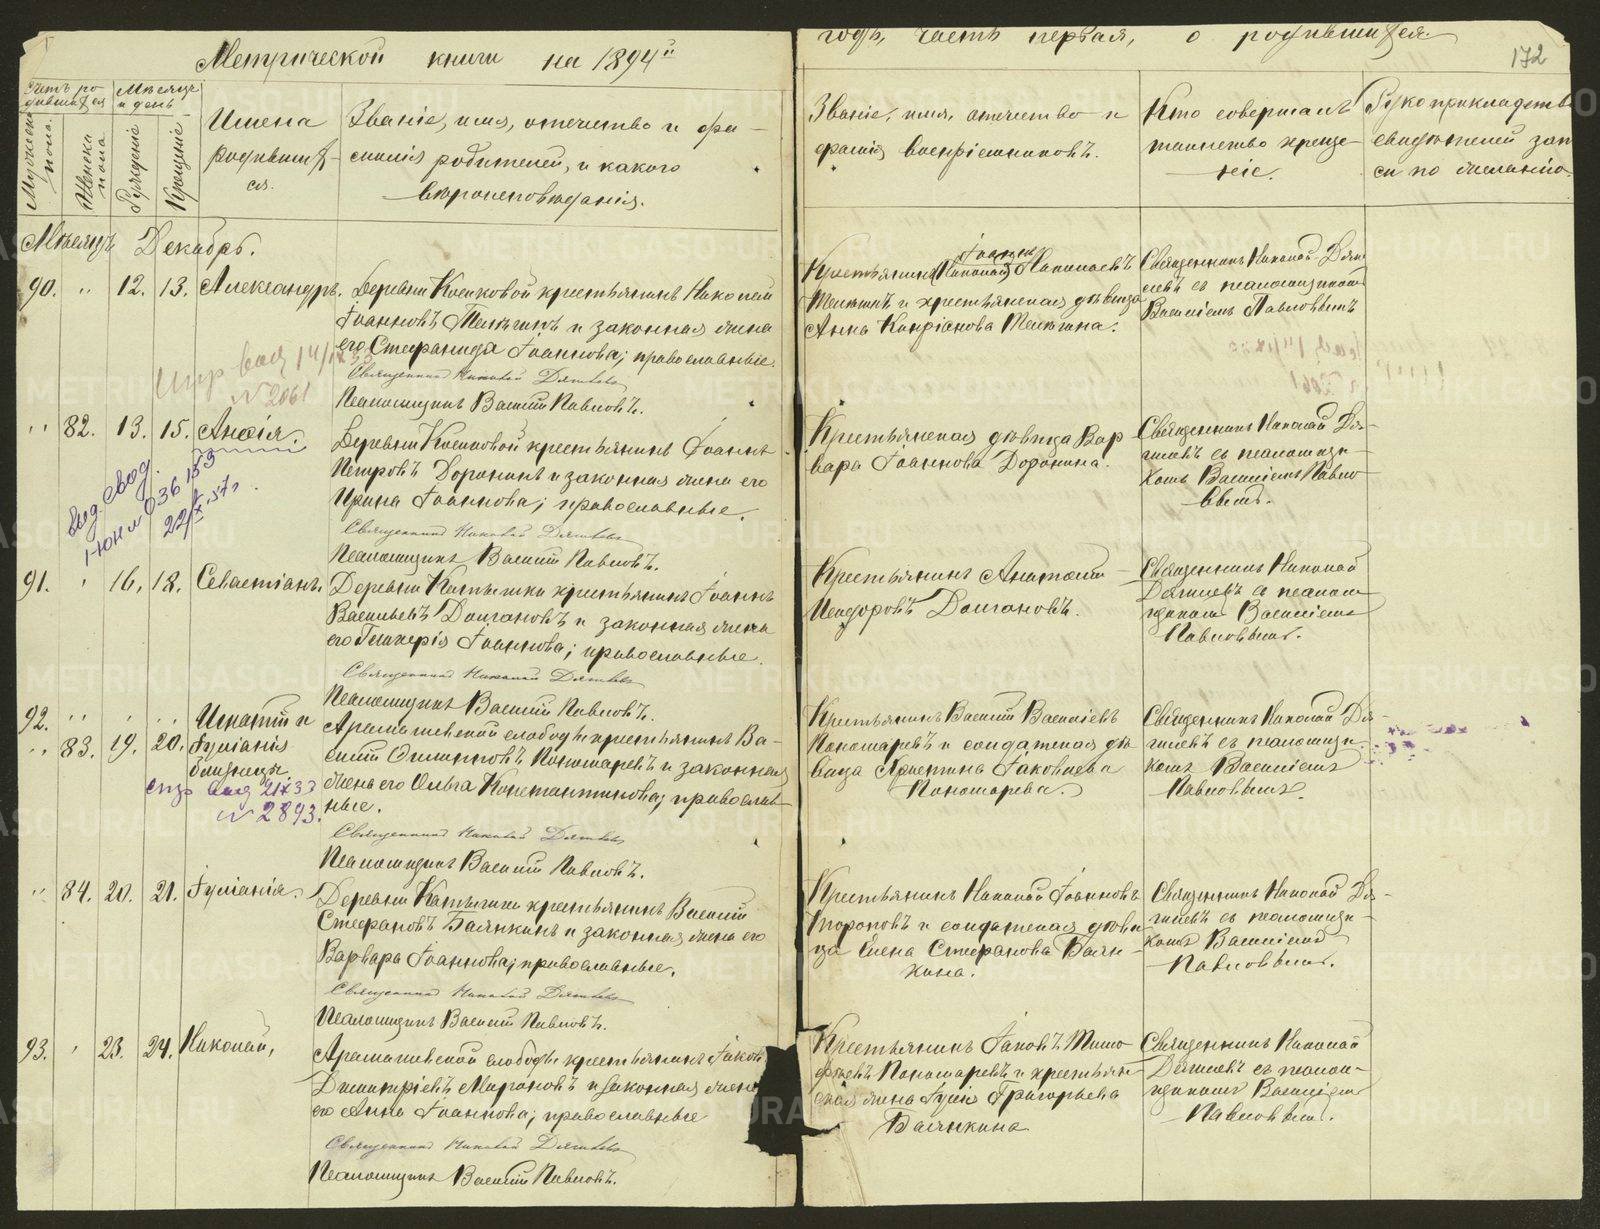 Метрической книги на 1894й
годъ, часть первая, о родившихся
172
Счетъ ро-
дившихся
Мѣсяцъ
и день
Мужеска
пола.
Женска
пола
Рожденіе
Крещеніе
Имена
родивших-
ся.
Званіе, имя, отечество и фа-
милія родителей, и какого
вѣроисповѣданія.
Званіе, имя, отчество и
фамилія воспріемниковъ.
Кто совершалъ
таинство креще-
ніе.
Рукоприкладств
свидѣтелей зап
си по желанію.
Мѣсяцъ Декабрь.
90. " 12. 13. Александръ.
Деревни Косиковой крестьянинъ Николай
Іоанновъ Телѣгинъ и законная жена
его Стефанида Іоаннова; православные
Священникъ Николай Дягилевъ
Псаломщикъ Василій Павловъ.
№ 2061
Крестьянинъ Николай Николаевъ
Телѣгинъ и крестьянская дѣвица
Анна Кипріанова Телѣгина.
Священникъ Николай Дяги
левъ съ псаломщикомъ
Василіемъ Павловымъ
" 82. 13. 15. Анисія.
выд. свод.
22/X 57г.
Деревни Косиковой крестьянинъ Іоаннъ
Петровъ Доронинъ и законная жена его
Ирина Іоаннова; православные.
Священникъ Николай Дягилевъ
Псаломщикъ Василій Павловъ.
Крестьянская дѣвица Вар
вара Іоаннова Доронина.
Священникъ Николай Дя-
гилевъ съ псаломщи-
комъ Василіемъ Павло
вымъ.
91. " 16. 18. Севастіанъ.
Деревни Катышки крестьянинъ Іоаннъ
Васильевъ Долгановъ и законная жена
его Гликерія Іоаннова; православные.
Священникъ Николай Дягилевъ
Псаломщикъ Василій Павловъ.
Крестьянинъ Анатолій
Неодоровъ Долгановъ.
Священникъ Николай
Дягилевъ съ псалом
щикомъ Василіемъ
Павловымъ.
92. " " " Игнатій и
" 83. 19. 20. Іуліанія
близнецы.
№ 2893.
Арамашевской слободы крестьянинъ Ва-
силій Филипповъ Пономаревъ и законная
жена его Ольга Константинова; православ-
ные.
Священникъ Николай Дягилевъ
Псаломщикъ Василій Павловъ.
Крестьянинъ Василій Василіевъ
Пономаревъ и солдатская дѣ
вица Христина Іаковлева
Пономарева.
Священникъ Николай Дя-
гилевъ съ псаломщи-
комъ Василіемъ
Павловымъ.
" 84. 20. 21. Іуліанія.
Деревни Катышки крестьянинъ Василій
Стефановъ Балякинъ и законная жена его
Варвара Іоаннова; православные.
Священникъ Николай Дягилевъ
Псаломщикъ Василій Павловъ.
Крестьянинъ Николай Іоанновъ
Тороповъ и солдатская дѣви
ца Елена Стефанова Баля-
кина.
Священникъ Николай Дя-
гилевъ съ псаломщи-
комъ Василіемъ
Павловымъ.
93. " 23. 24. Николай,
Арамашевской слободы крестьянинъ Іаковъ
Димитріевъ Мироновъ и законная жена
его Анна Іоаннова; православные
Священникъ Николай Дягилевъ
Псаломщикъ Василій Павловъ.
Крестьянинъ Іаковъ Тимо
фѣевъ Пономаревъ и крестьян-
ская жена Іулія Григорьева
Балякина
Священникъ Николай
Дягилевъ съ псалом-
щикомъ Василіемъ
Павловымъ.